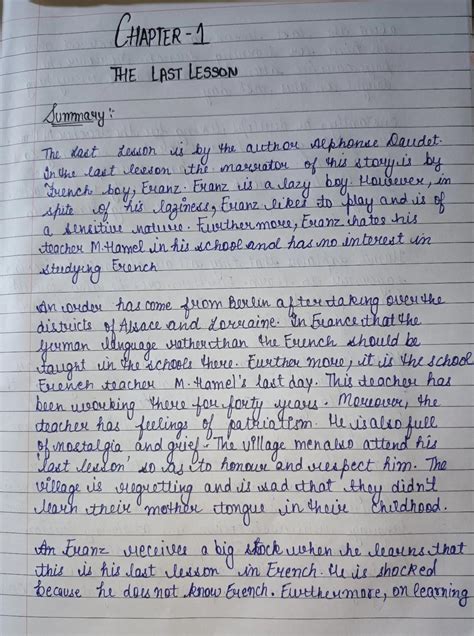 CHAPTER-1
THE LAST LESSON
Summary:-
The Last Lesson is by the author Alphonse Daudet.
In the last lesson the narrator of this story is by
French boy, Franz. Franz is a lazy boy. However, in
spite of his laziness, Franz likes to play and is of
a sensitive nature. Furthermore, Franz hates his
teacher M.Hamel in his school and has no interest in
studying French
An order has come from Berlin after taking over the
districts of Alsace and Lorraine. In France that the
german language rather than the French should be
taught in the schools there. Further more, it is the school
French teacher M.Hamel's last day. This teacher has
been working there for forty years. Moreover, the
teacher has feelings of patriatism. He is also full
of nostalgia and grief. The village men also attend his
'last lesson' so as to honour and respect him. The
village is regretting and is sad that they didn't
learn their mother tongue in their childhood.
An Franz receives a big shock when he learns that
this is his last lesson in French. He is shocked
because he does not know French. Furthermore, on learning